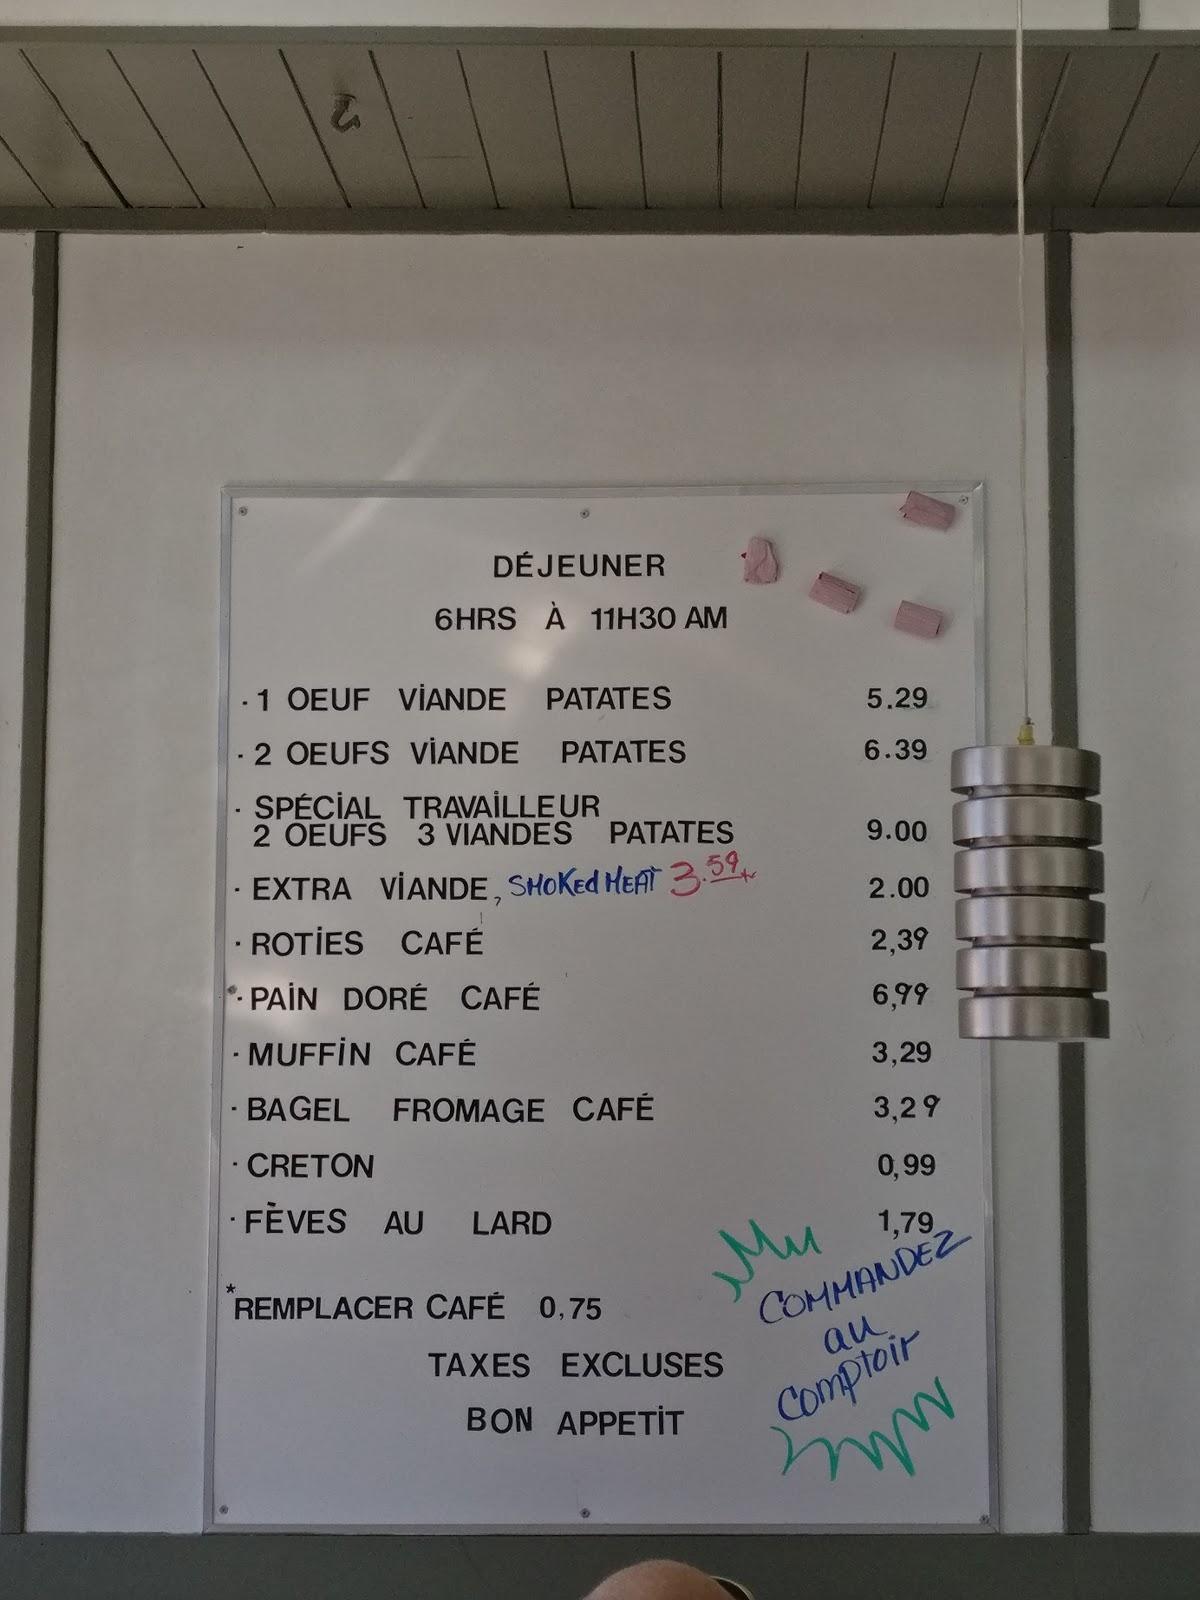 DÉJEUNER
6HRS À 11H30 AM
· 1 OEUF VIANDE PATATES 5.29
· 2 OEUFS VIANDE PATATES 6.39
· SPÉCIAL TRAVAILLEUR
2 OEUFS 3 VIANDES PATATES 9.00
· EXTRA VIANDE, SMOKED MEAT 3.59 2.00
· ROTIES CAFÉ 2,39
· PAIN DORÉ CAFÉ 6,99
· MUFFIN CAFÉ 3,29
· BAGEL FROMAGE CAFÉ 3,29
· CRETON 0,99
· FÈVES AU LARD 1,79
*REMPLACER CAFÉ 0,75
TAXES EXCLUSES
BON APPETIT
COMMANDEZ
au
comptoir